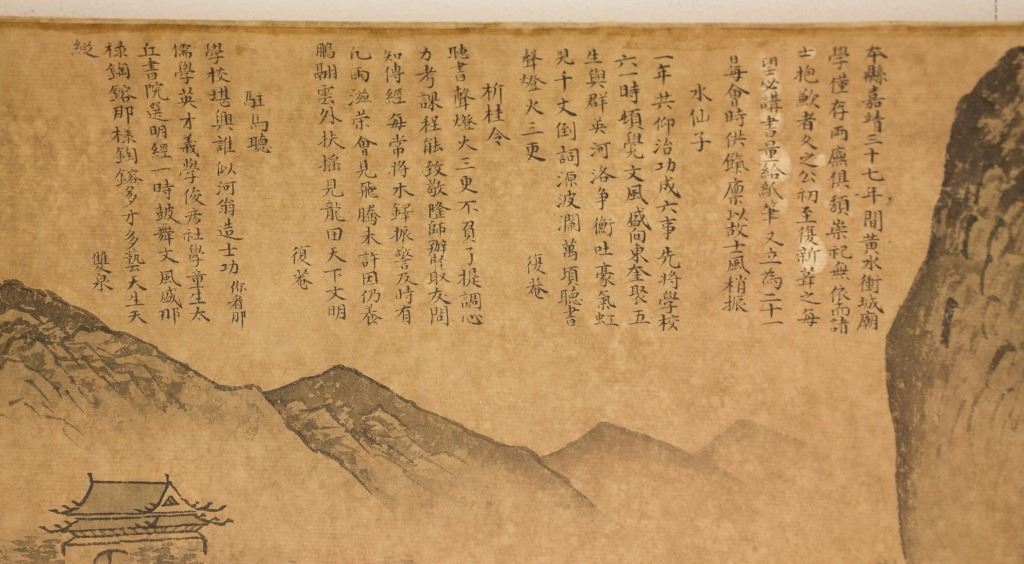 本縣嘉靖三十七年間黄水衝城廟
學僅存两廡俱頽崇祀無依而請
士抱歉者久之公初至復新葺之每
望必講書量給紙筆又立為二十一
每會時供饌廪以故士風稍振
水仙子
一年共仰治功成六事先將學校
六一時頃覺文風盛向東奎聚五
生與群英河洛爭衡吐豪氣虹
見千丈倒詞源波瀾萬項聽書
聲燈火三更
復菴
折桂令
聽書聲燈火三更不負了提調心
力考課程能致敬隆師辦腎取友問
知傳經每常將木鐸振警及時有
化雨滋荣會見飛騰未許因仍養
鵬翮雲外扶摇見龍田天下文明
復菴
駐馬聽
學校堪興誰似河翁造士功你看那
儒學英才義學俊秀社學童生太
丘書院選明經一時鼓舞文風盛那
禄錫鎔那禄錫鎔多才多藝天生天
縱
雙泉